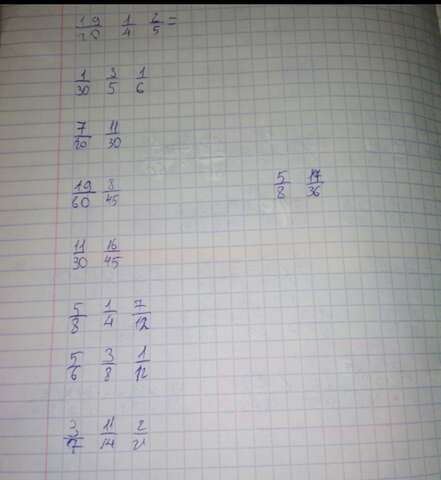 19/20 1/4 2/5 =
1/30 3/5 1/6
7/20 11/30
19/60 8/45 5/8 17/36
11/30 16/45
5/8 1/4 7/12
5/6 3/8 1/12
3/7 11/14 2/21